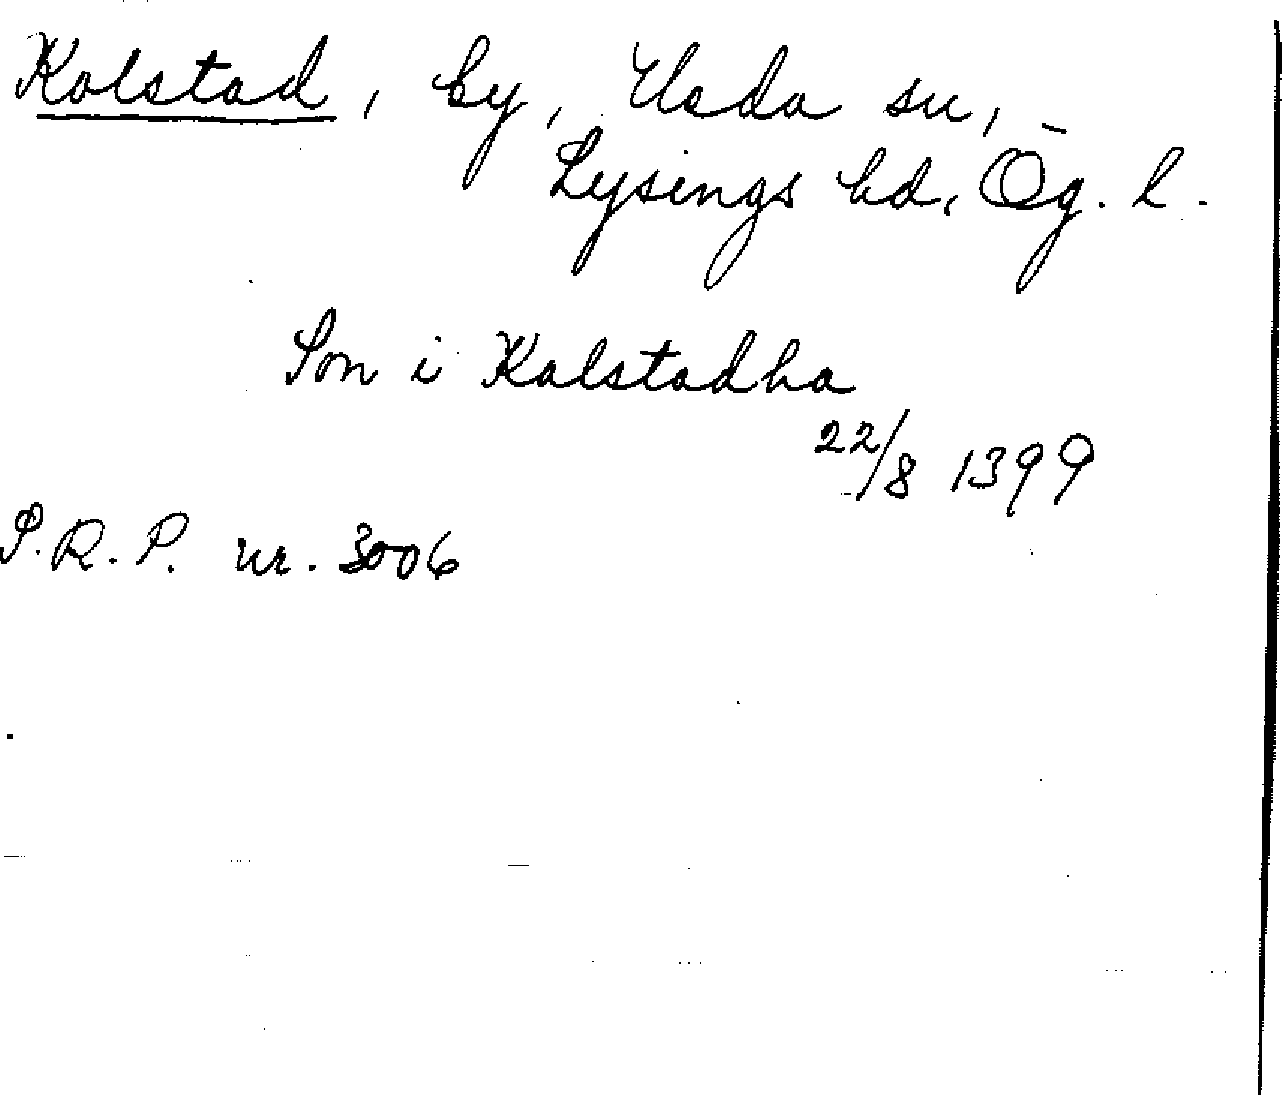 Kalstad, by, Heda sn,
Lysings hd, Ög. l.
Son i Kalstadha
22/8 1399
S.R.P. nr. 3006